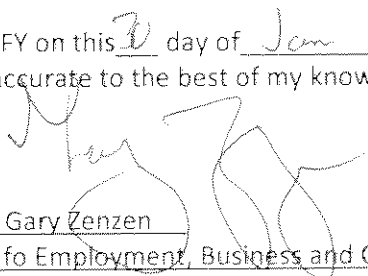 FY on this 20 day of Jan
accurate to the best of my know
Gary Zenzen
fo Employment, Business and